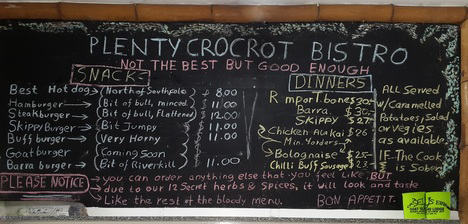 PLENTYCROCROT BISTRO
NOT THE BEST BUT GOOD ENOUGH
SNACKS
Best Hot dog (North of Southpole) $ 8.00
Hamburger (Bit of bull, minced) 11.00
Steakburger (Bit of bull, Flattened) 12.00
SkippyBurger (Bit Jumpy 11.00
Buffburger (Very Horny 11.00
Goatburger (Coming Soon
Barraburger (Bit of Riverkill) 11.00
DINNERS
Rump or T.bones 30-
Barra. $ 30-
SKippy $ 27-
Chicken Alakai $26-
Min. Yorders
Bolognaise $ 25-
Chilli Buff Sausages $ 23
ALL Served
w/Caramelled
Potatoes, Salad
or Vegies
as available.
IF The Cook
is Sober
PLEASE NOTICE
you can order anything else that you feel like BUT
due to our 12 Secret herbs & Spices, it will look and taste
Like the rest of the bloody menu. BON APPETIT.